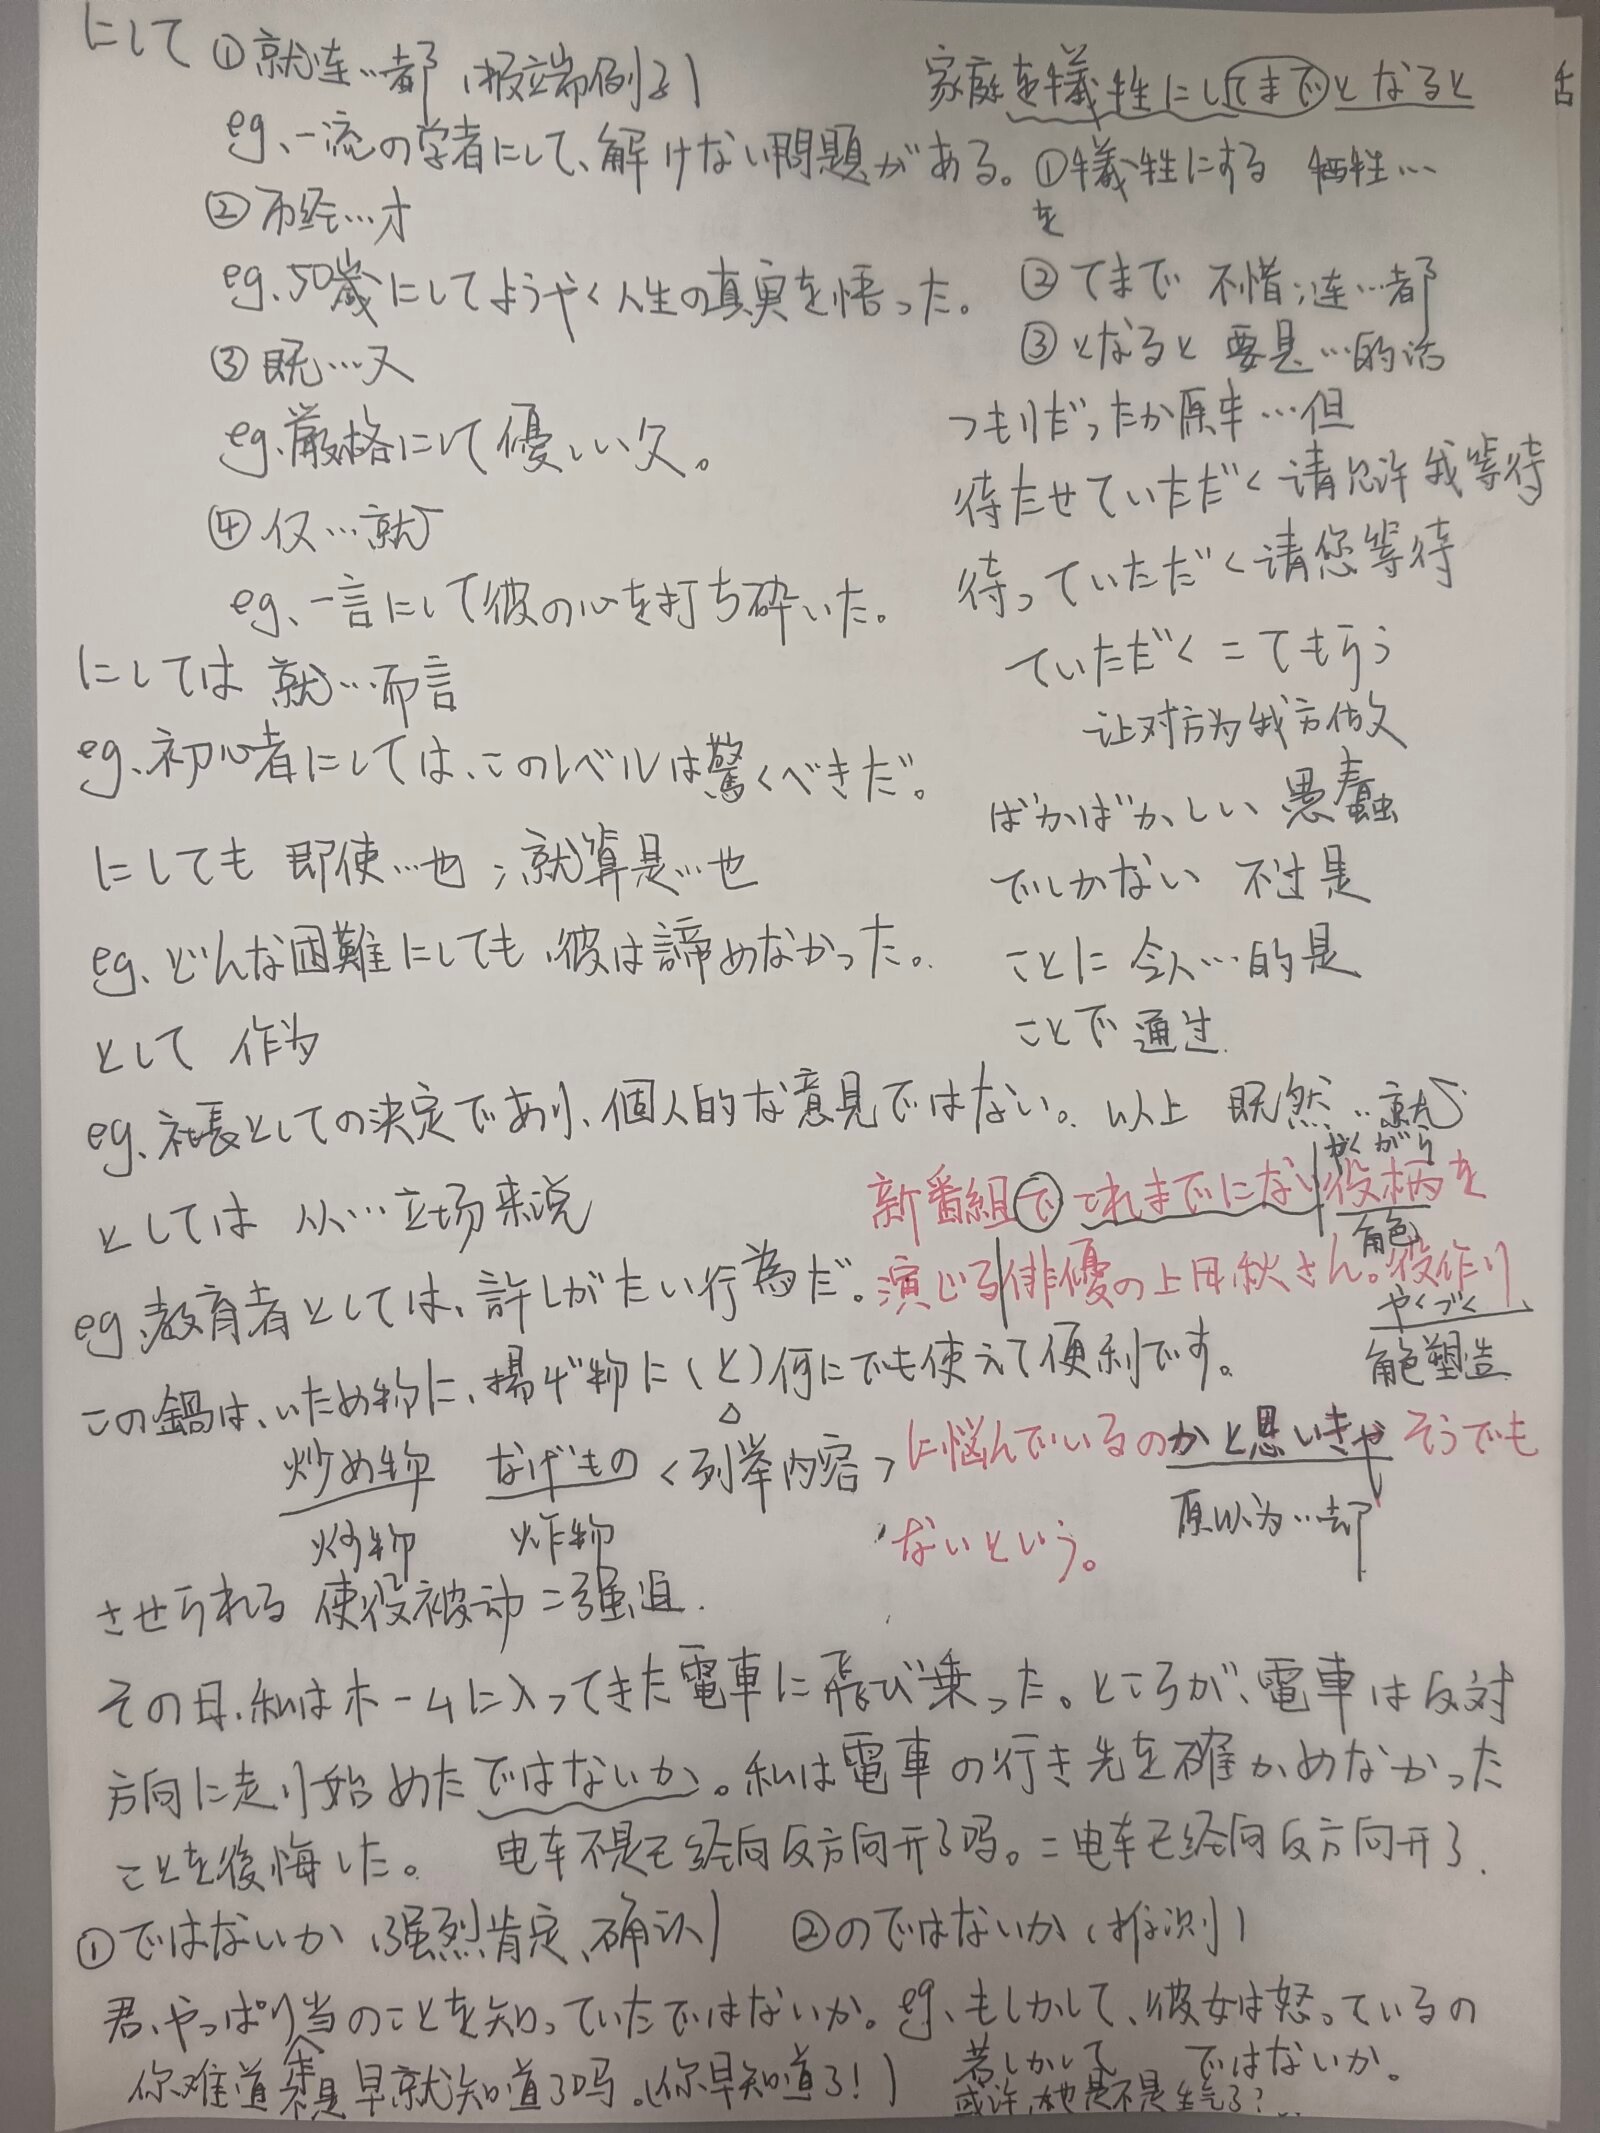 にして ①就连…都（极端例子）
eg、一流の学者にして、解けない問題がある。
②历经…才
eg、50歳にしてようやく人生の真実を悟った。
③既…又
eg、厳格にして優しい父。
④仅…就
eg、一言にして彼の心を打ち砕いた。
にしては 就…而言
eg、初心者にしては、このレベルは驚くべきだ。
にしても 即使…也；就算是…也
eg、どんな困難にしても、彼は諦めなかった。
として 作为
eg、社長としての決定であり、個人的な意見ではない。
としては 从…立场来说
eg、教育者としては、許しがたい行為だ。
家庭を犠牲にしてまでとなると
①犠牲にする 牺牲…
を
②てまで 不惜；连…都
③となると 要是…的话
つもりだったが 原本…但
待たせていただく 请允许我等待
待っていただく 请您等待
ていただく＝てもらう
让对方为我方做
ばかばかしい 愚蠢
でしかない 不过是
ことに 令人…的是
ことで 通过
以上 既然…就
やくがら
新番組でこれまでにない役柄を
角色
演じる俳優の上田秋さん。役作り
やくづく
角色塑造
に悩んでいるのかと思いきやそうでも
原以为…却
ないという。
この鍋は、いため物に、揚げ物に（と）何にでも使えて便利です。
炒め物 なげもの <列举内容>
炒物 炸物
させられる 使役被动＝强迫
その日、私はホームに入ってきた電車に飛び乗った。ところが、電車は反対
方向に走り始めたではないか。私は電車の行き先を確かめなかった
ことを後悔した。 电车不是已经向反方向开了吗。＝电车已经向反方向开了.
①ではないか（强烈肯定、确认） ②のではないか（推测）
君、やっぱり当のことを知っていたではないか。eg、もしかして、彼女は怒っているの
本
若しかして ではないか。
你难道不是早就知道了吗。（你早知道了！）
或许，她是不是生气了？